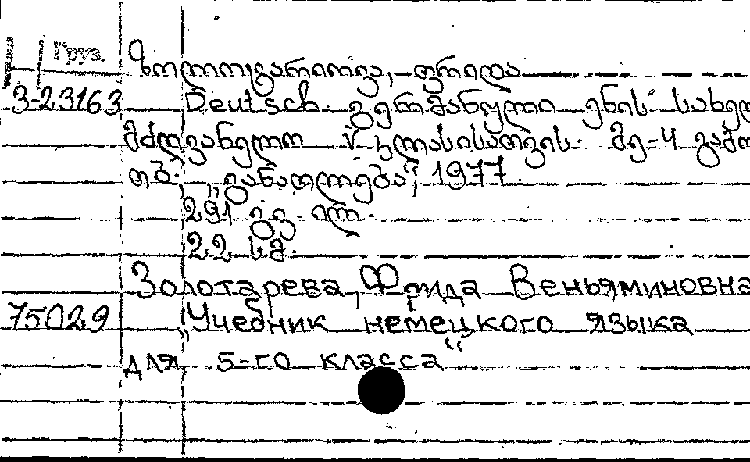 Груз. ზოლოტარიოვა, ფრიდა
3-23163 Deutsch. გერმანული ენის სახელ
მძღვანელო V კლასისათვის. მე-4 გამო
თბ., „განათლება“, 1977.
291 გვ. ილ.
22 სმ.
Золотарева, Фрида Веньяминовна
75029 „Учебник немецкого языка
для 5-го класса“